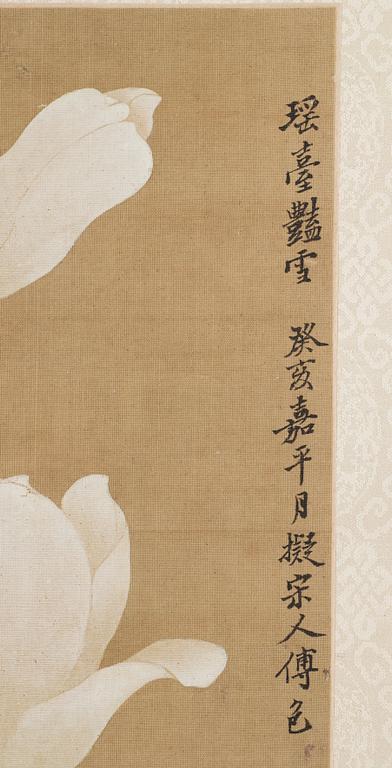 瑶臺豔雪 癸亥嘉平月擬宋人傅色